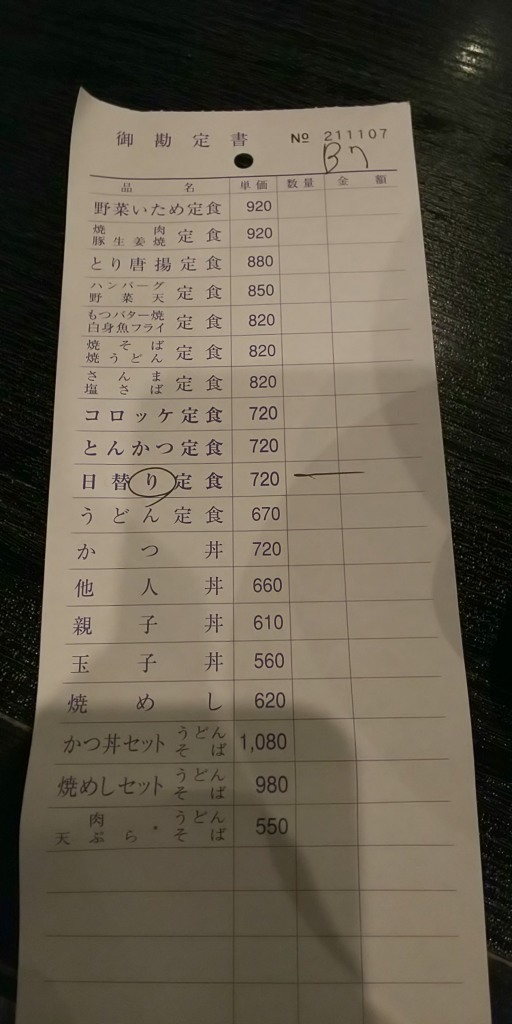 御勘定書 № 211107
B7
品名 単価 数量 金額
野菜いため定食 920
焼肉
豚生姜焼 定食 920
とり唐揚定食 880
ハンバーグ
野菜天 定食 850
もつバター焼
白身魚フライ 定食 820
焼そば
焼うどん 定食 820
さんま
塩さば 定食 820
コロッケ定食 720
とんかつ定食 720
日替り定食 720 一
うどん定食 670
かつ丼 720
他人丼 660
親子丼 610
玉子丼 560
焼めし 620
かつ丼セット うどん
そば 1,080
焼めしセット うどん
そば 980
肉
天ぷら ・ うどん
そば 550